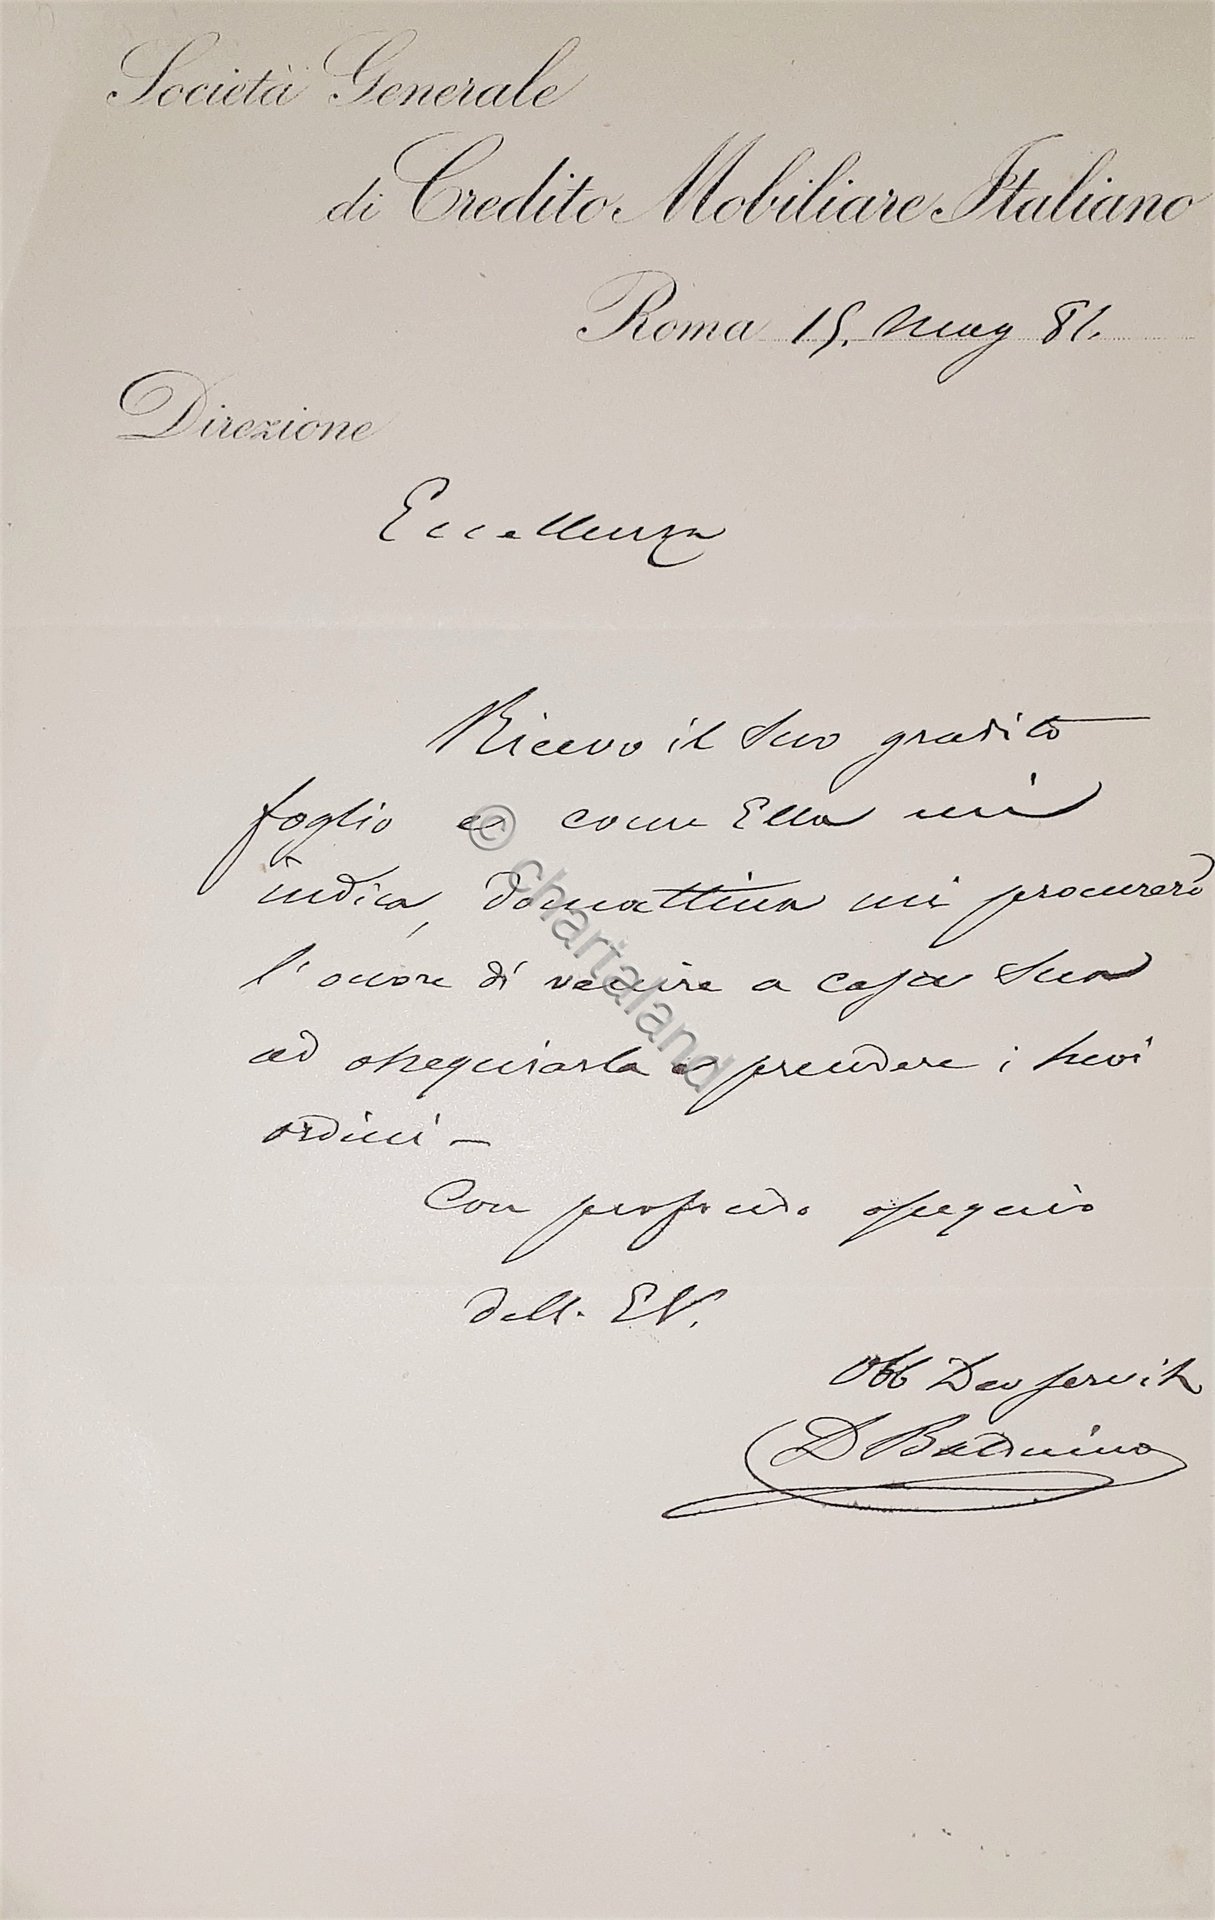 Società Generale
di Credito Mobiliare Italiano
Roma 15. Mag 81.
Direzione
Eccellenza
Ricevo il Suo gradito
foglio e come Ella mi
indica, domattina mi procurerò
l'onore di venire a casa Sua
ad ossequiarla e prendere i suoi
ordini —
Con profondo ossequio
dell. EV.
Obb Dev servit
D Balduino
© chartaland